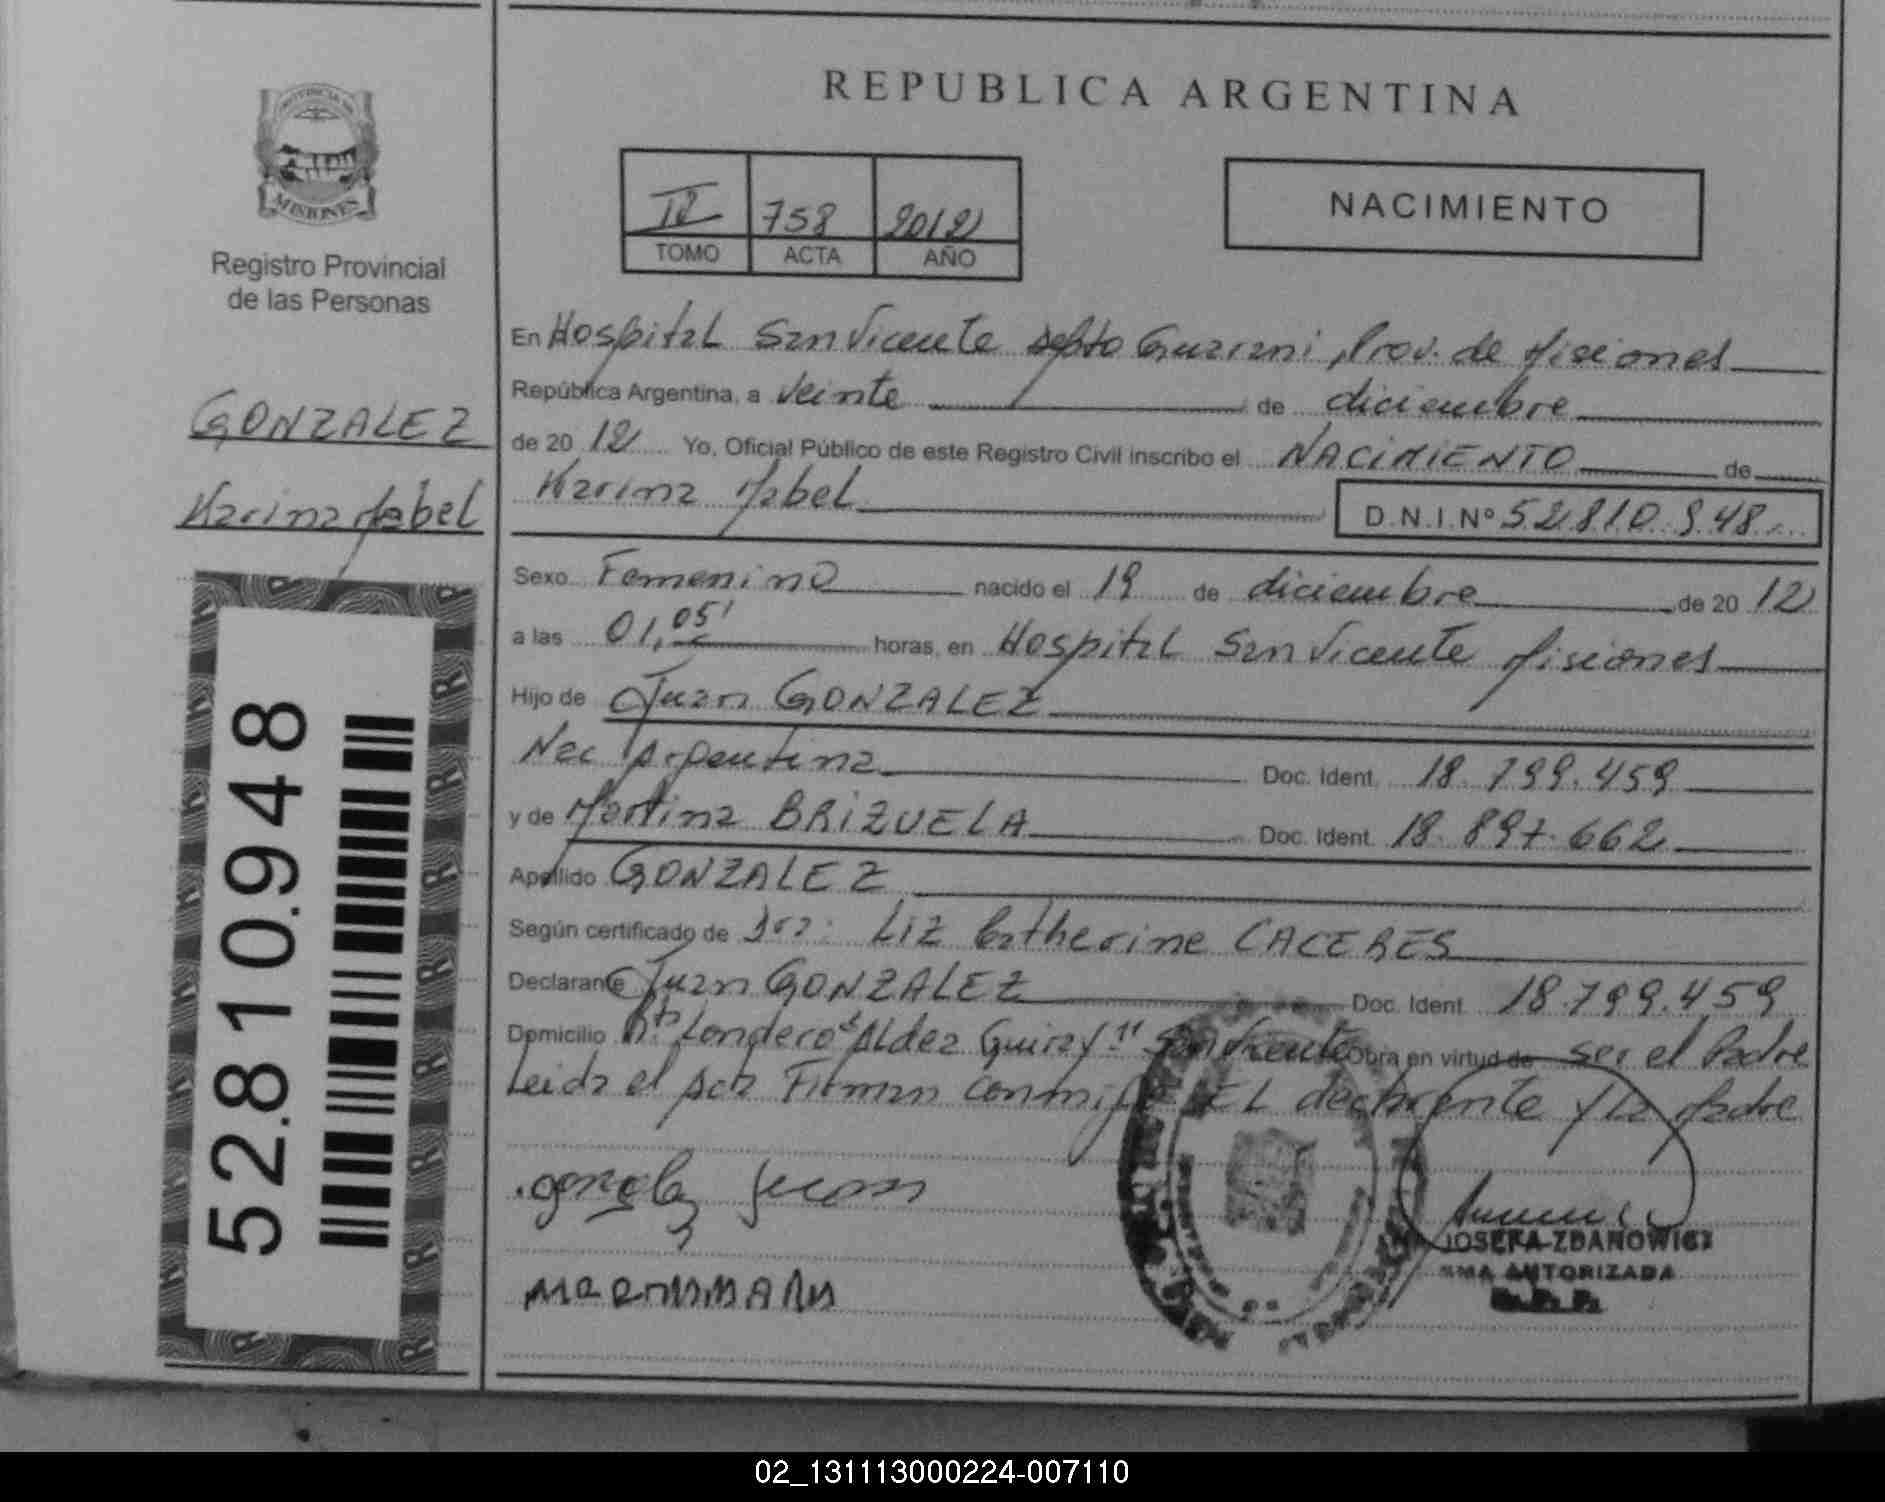 REPUBLICA ARGENTINA
PROVINCIA DE
MISIONES
Registro Provincial
de las Personas
GONZALEZ
Karina Mabel
52.810.948
II 758 2012
TOMO ACTA AÑO
NACIMIENTO
En Hospital San Vicente depto Guarani, Prov. de Misiones
República Argentina, a veinte de diciembre
de 2012 Yo, Oficial Público de este Registro Civil inscribo el NACIMIENTO de
Karina Mabel
D.N.I.Nº 52.810.948
Sexo Femenino nacido el 19 de diciembre de 2012
a las 01,05' horas, en Hospital San Vicente Misiones
Hijo de Juan GONZALEZ
Nac Argentina Doc. Ident. 18.799.459
y de Martina BRIZUELA Doc. Ident. 18.897.662
Apellido GONZALEZ
Según certificado de Dra: Liz Catherine CACERES
Declarante Juan GONZALEZ Doc. Ident. 18.799.459
Domicilio Aldea Guiray" San Vicente Obra en virtud de ser el Padre
Leida el Acta Firman conmigo EL declarante y la Madre
Juan
JOSEFA ZDANOWICZ
AUTORIZADA
02_131113000224-007110